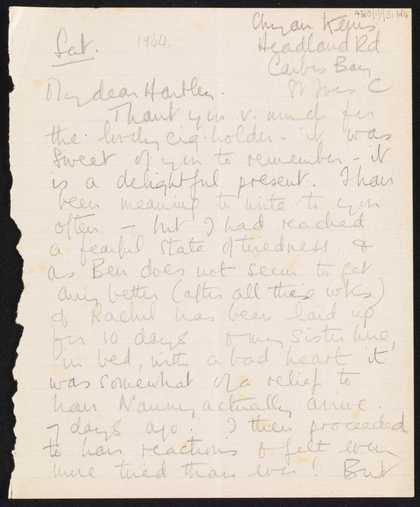 Chyan Kerris
Headland Rd
Carbis Bay
St Ives C
Sat. 1944
My dear Hartley.
Thank you v. much for
the lovely cig-holder - it was
sweet of you to remember - it
is a delightful present. I have
been meaning to write to you
often - but I had reached
a fearful state of tiredness &
as Ben does not seem to get
any better (after all these wks)
& Rachel has been laid up
for 10 days & my sister here,
in bed, with a bad heart it
was somewhat of a relief to
have Nanny actually arrive
7 days ago. I then proceeded
to have reactions & felt even
more tired than ever! But